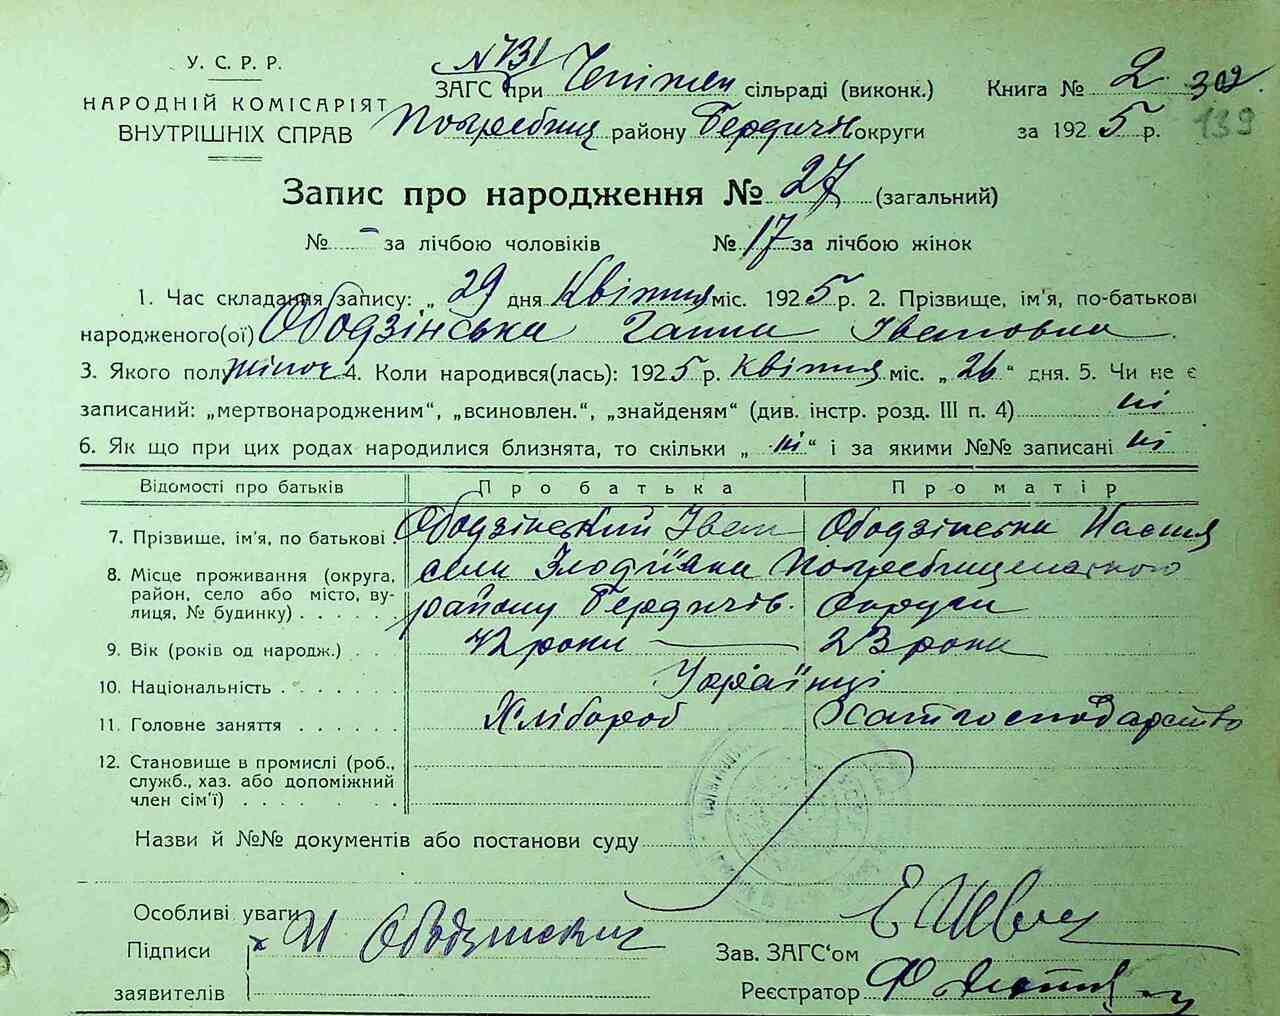 У. С. Р. Р.
НАРОДНІЙ КОМІСАРІЯТ
ВНУТРІШНІХ СПРАВ
№ 731
ЗАГС при сільраді (виконк.)
Погребищ району Бердичів округи
Книга № 2 302
за 1925 р. 139
Запис про народження № 27 (загальний)
№ - за лічбою чоловіків № 17 за лічбою жінок
1. Час складання запису: „ 29 дня Квітня міс. 1925 р. 2. Прізвище, ім'я, по-батькові
народженого(ої) Ободзінська Ганна Івановна
3. Якого полу жіноч 4. Коли народився(лась): 1925 р. квітня міс. „ 26 “ дня. 5. Чи не є
записаний: „мертвонародженим“, „всиновлен.“, „знайденям“ (див. інстр. розд. III п. 4) ні
6. Як що при цих родах народилися близнята, то скільки „ ні “ і за якими №№ записані ні
Відомості про батьків Про батька Про матір
7. Прізвище, ім'я, по батькові Ободзінський Іван Ободзінська Настя
8. Місце проживання (округа, район, село або місто, вулиця, № будинку) села Злодіївки Погребищенського
району Бердичів. Округи
9. Вік (років од народж.) 42 роки 23 роки
10. Національність Українці
11. Головне заняття Хлібороб Хатгосподарство
12. Становище в промислі (роб.,
служб., хаз. або допоміжний
член сім'ї)
Назви й №№ документів або постанови суду
Особливі уваги
Підписи
заявителів
х И Ободзинский
Зав. ЗАГС'ом
Реєстратор